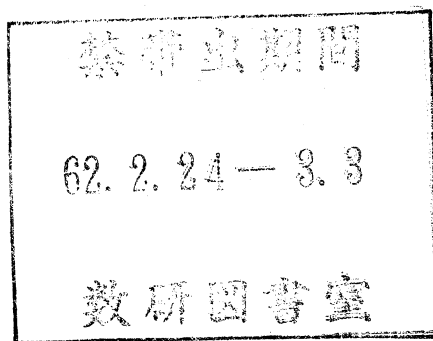 禁帯出期間
62. 2. 24 — 3. 3
数研図書室